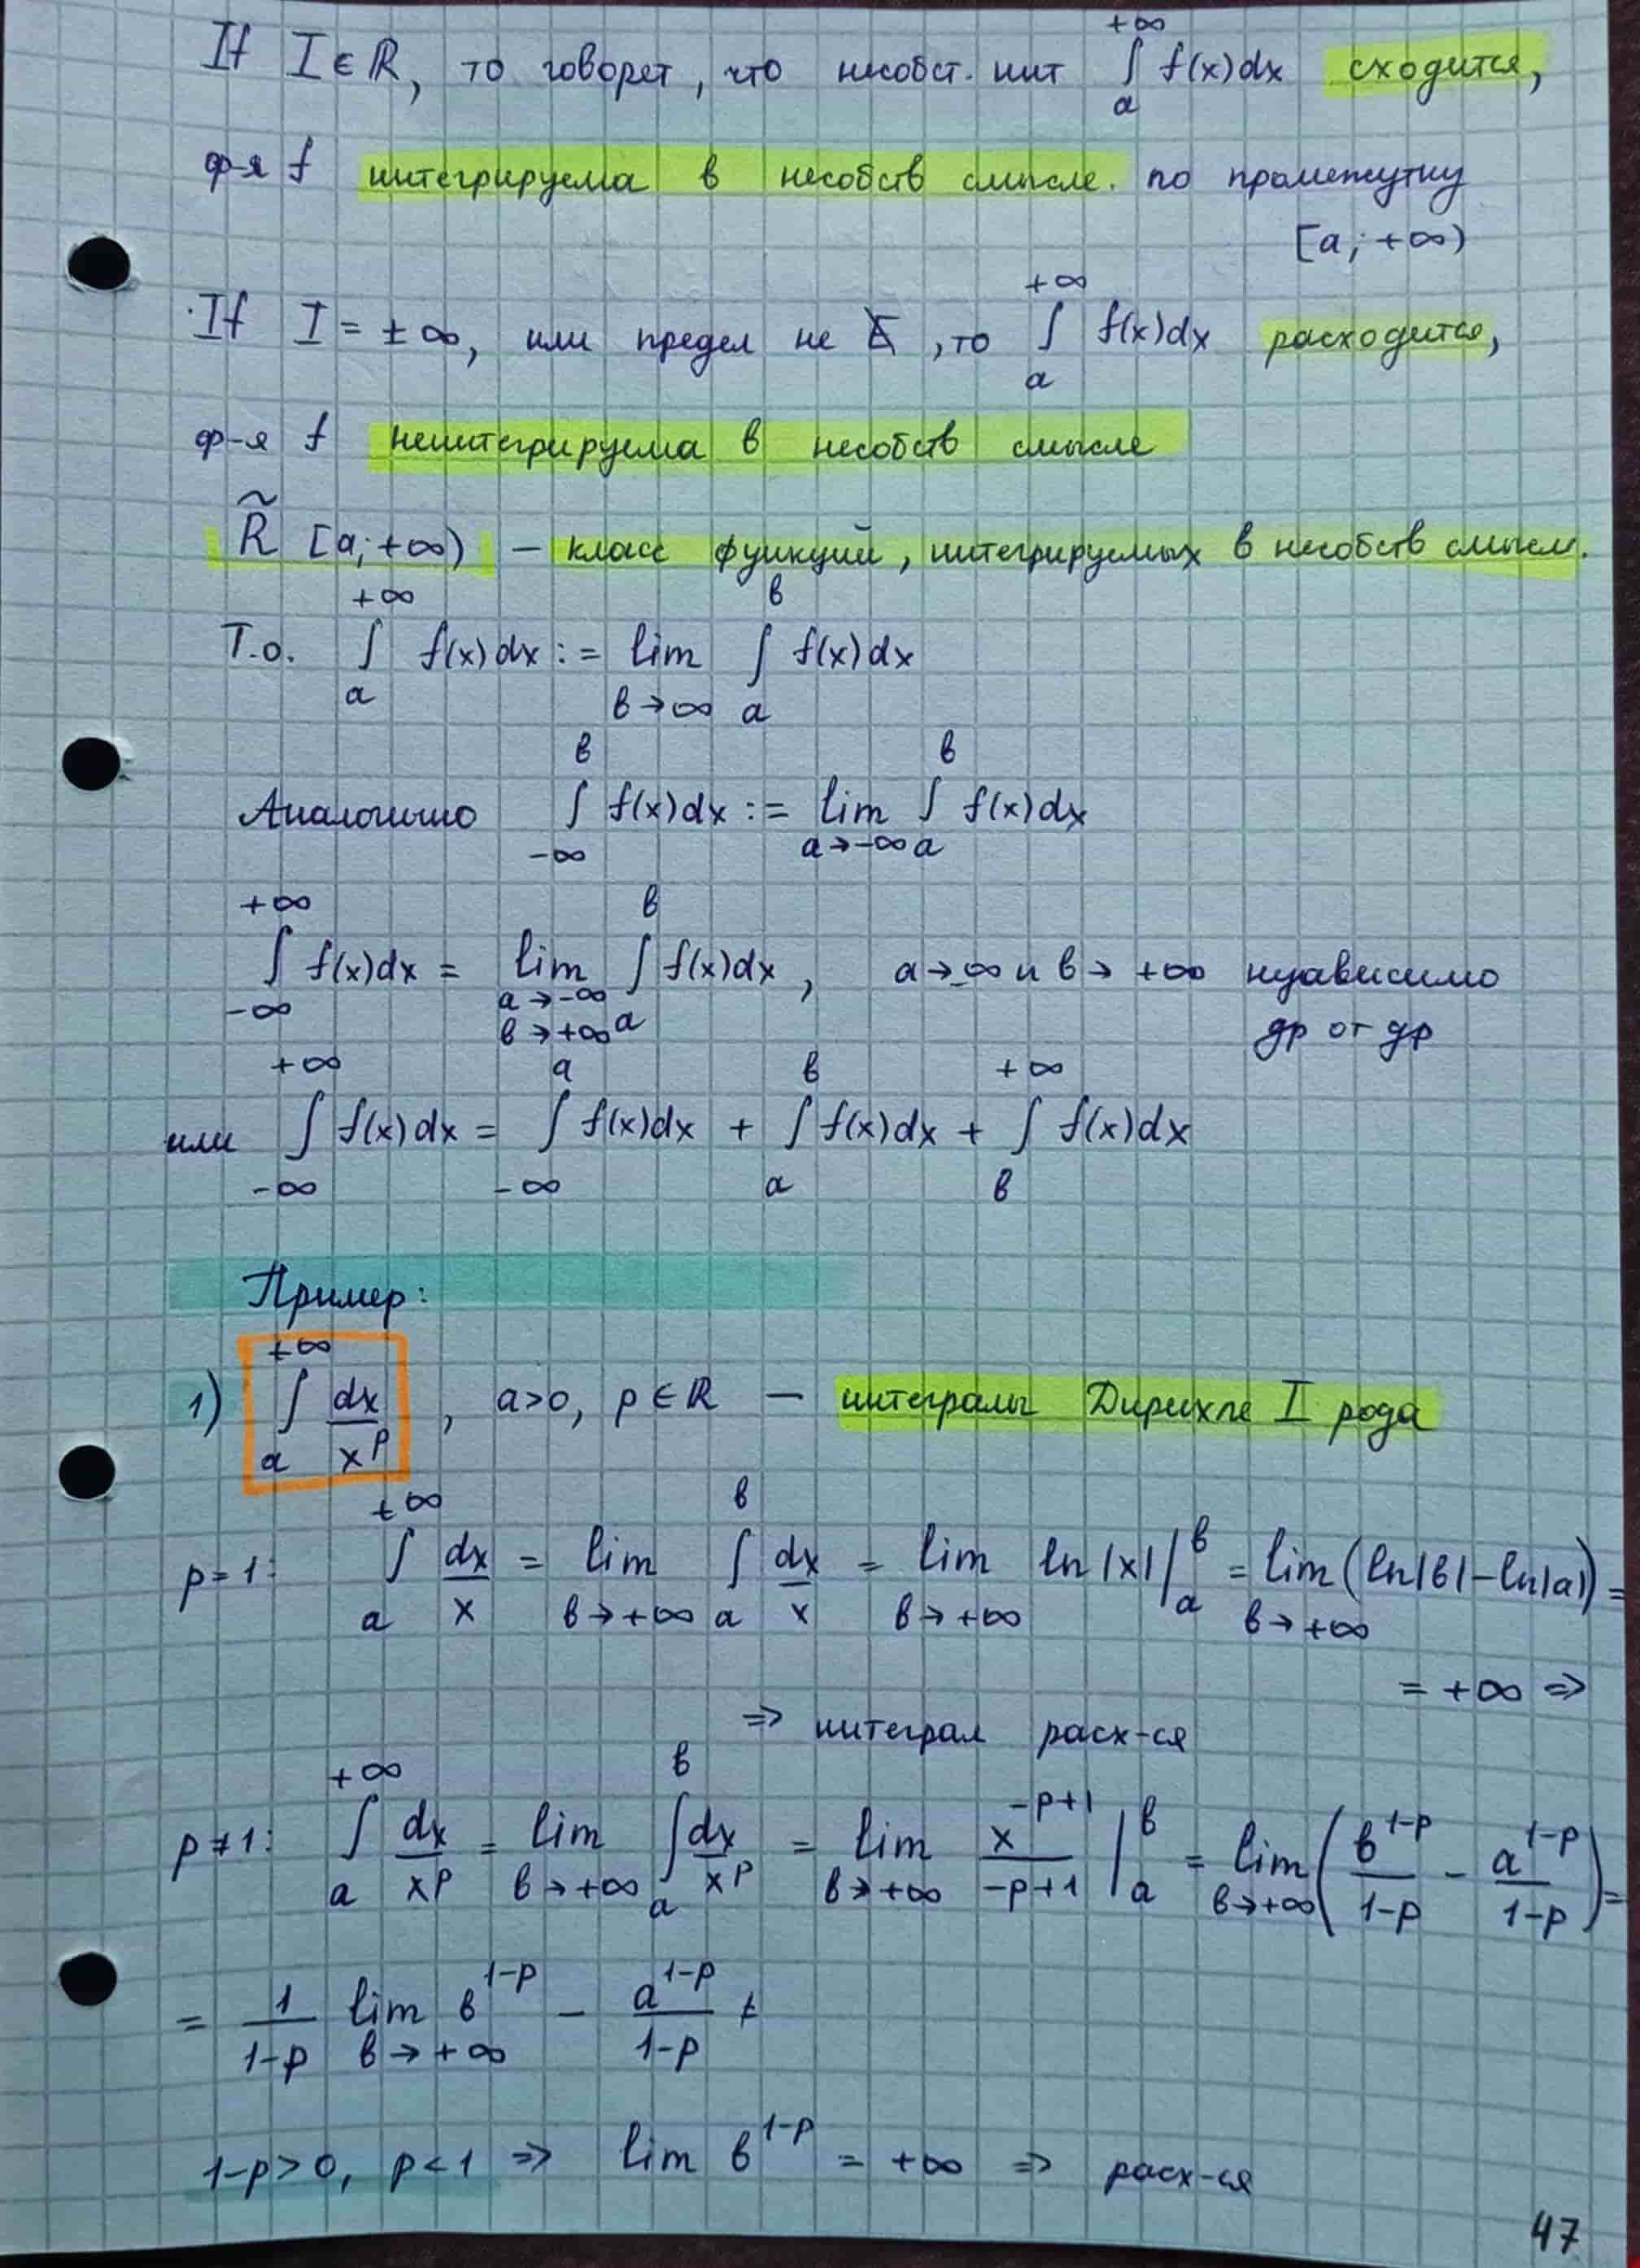 If I ∈ ℝ, то говорят, что несобст. инт ∫ₐ^{+∞} f(x)dx сходится,
ф-я f интегрируема в несобств смысле. по промежутку
[a; +∞)
If I = ±∞, или предел не ∃, то ∫ₐ^{+∞} f(x)dx расходится,
ф-я f неинтегрируема в несобств смысле
R̃ [a; +∞) – класс функций, интегрируемых в несобств смысл.
Т.о. ∫ₐ^{+∞} f(x)dx := lim_{в→∞} ∫ₐ^{в} f(x)dx
Аналогично ∫_{-∞}^{в} f(x)dx := lim_{a→-∞} ∫ₐ^{в} f(x)dx
∫_{-∞}^{+∞} f(x)dx = lim_{a→-∞ в→+∞} ∫ₐ^{в} f(x)dx, a→-∞ и в→ +∞ независимо
др от др
или ∫_{-∞}^{+∞} f(x)dx = ∫_{-∞}^{a} f(x)dx + ∫ₐ^{в} f(x)dx + ∫_{в}^{+∞} f(x)dx
Пример:
1) ∫ₐ^{+∞} dx/x^p, a>0, p∈ℝ – интегралы Дирихле I рода
p=1: ∫ₐ^{+∞} dx/x = lim_{в→+∞} ∫ₐ^{в} dx/x = lim_{в→+∞} ln|x| |ₐ^{в} = lim_{в→+∞} (ln|в|-ln|a|) =
= +∞ ⇒
⇒ интеграл расх-ся
p≠1: ∫ₐ^{+∞} dx/x^p = lim_{в→+∞} ∫ₐ^{в} dx/x^p = lim_{в→+∞} x^{-p+1}/(-p+1) |ₐ^{в} = lim_{в→+∞} (в^{1-p}/(1-p) - a^{1-p}/(1-p)) =
= 1/(1-p) lim_{в→+∞} в^{1-p} - a^{1-p}/(1-p)
1-p>0, p<1 ⇒ lim в^{1-p} = +∞ ⇒ расх-ся
47